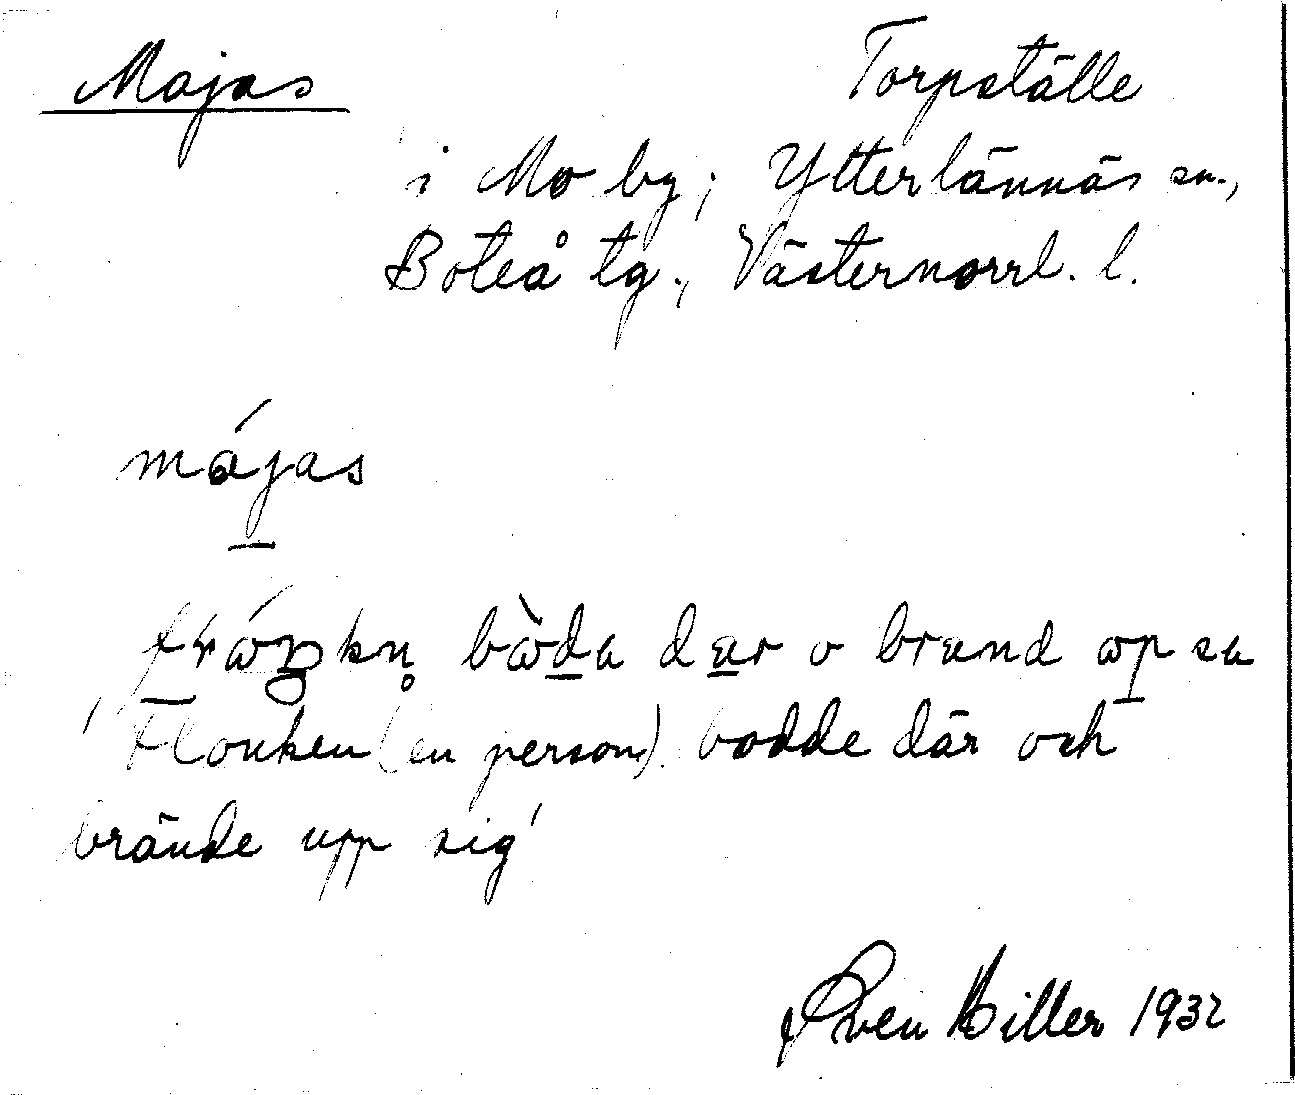 Majas
Torpställe
i Mo by; Ytterlännäs sn.,
Boteå tg., Västernorrl. l.
májas
bò̱da da̱r o brand
'Flonken (en person) bodde där och
brände upp sig'
Sven Hiller 1932